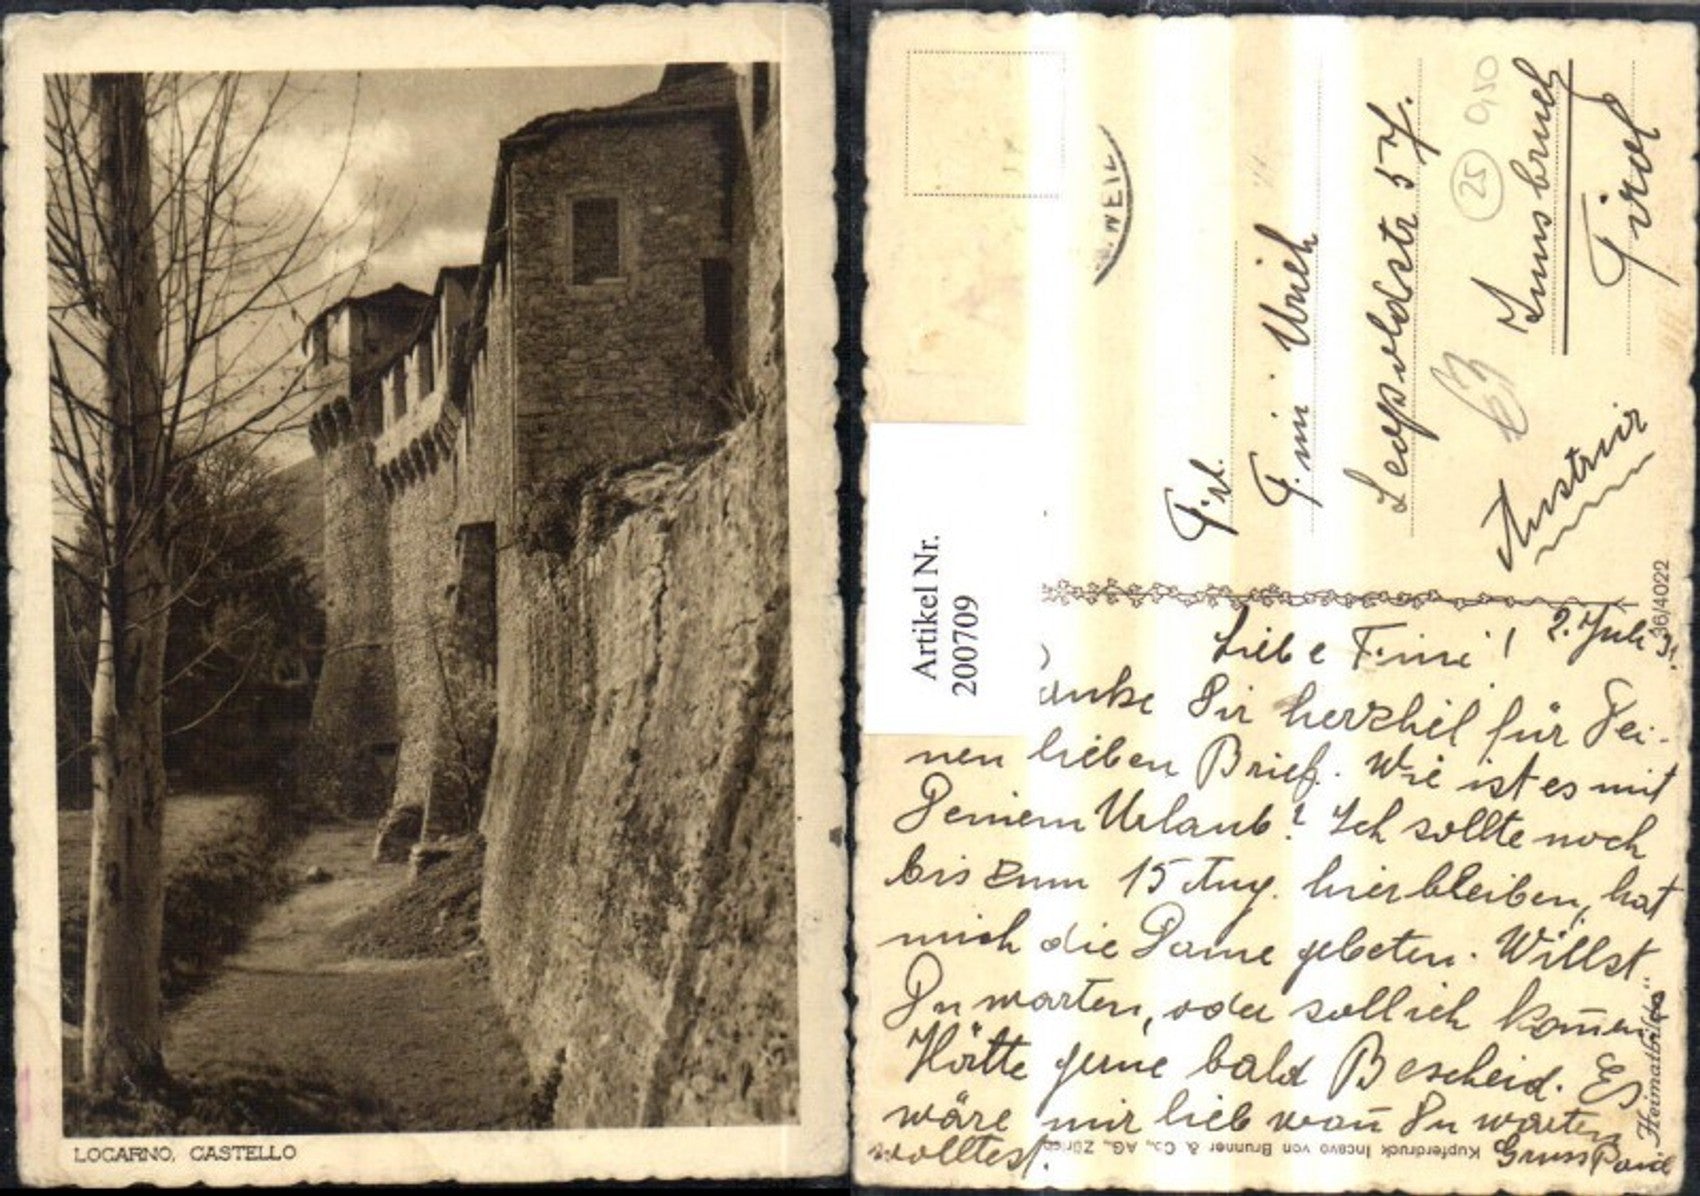 LOCARNO, CASTELLO
WEIL
Frl.
Fini
Leopoldstr 57.
Innsbruck
Tirol
Austria
25
0,50
Artikel Nr.
200709
36/4022
Liebe Fini! 2. Juli
anke Dir herzhil für Dei-
nen lieben Brief. Wie ist es mit
Deinem Urlaub? Ich sollte noch
bis zum 15 Aug. hierbleiben, hat
mich die Dame gebeten. Willst
Du warten, oder soll ich kom̄en
Hätte gerne bald Bescheid. Es
wäre mir lieb wan̄ Du warten
wolltest.
Gruss
Kupferdruck Incavo von Brunner & Co., AG., Zürich
„Heimatbilder“